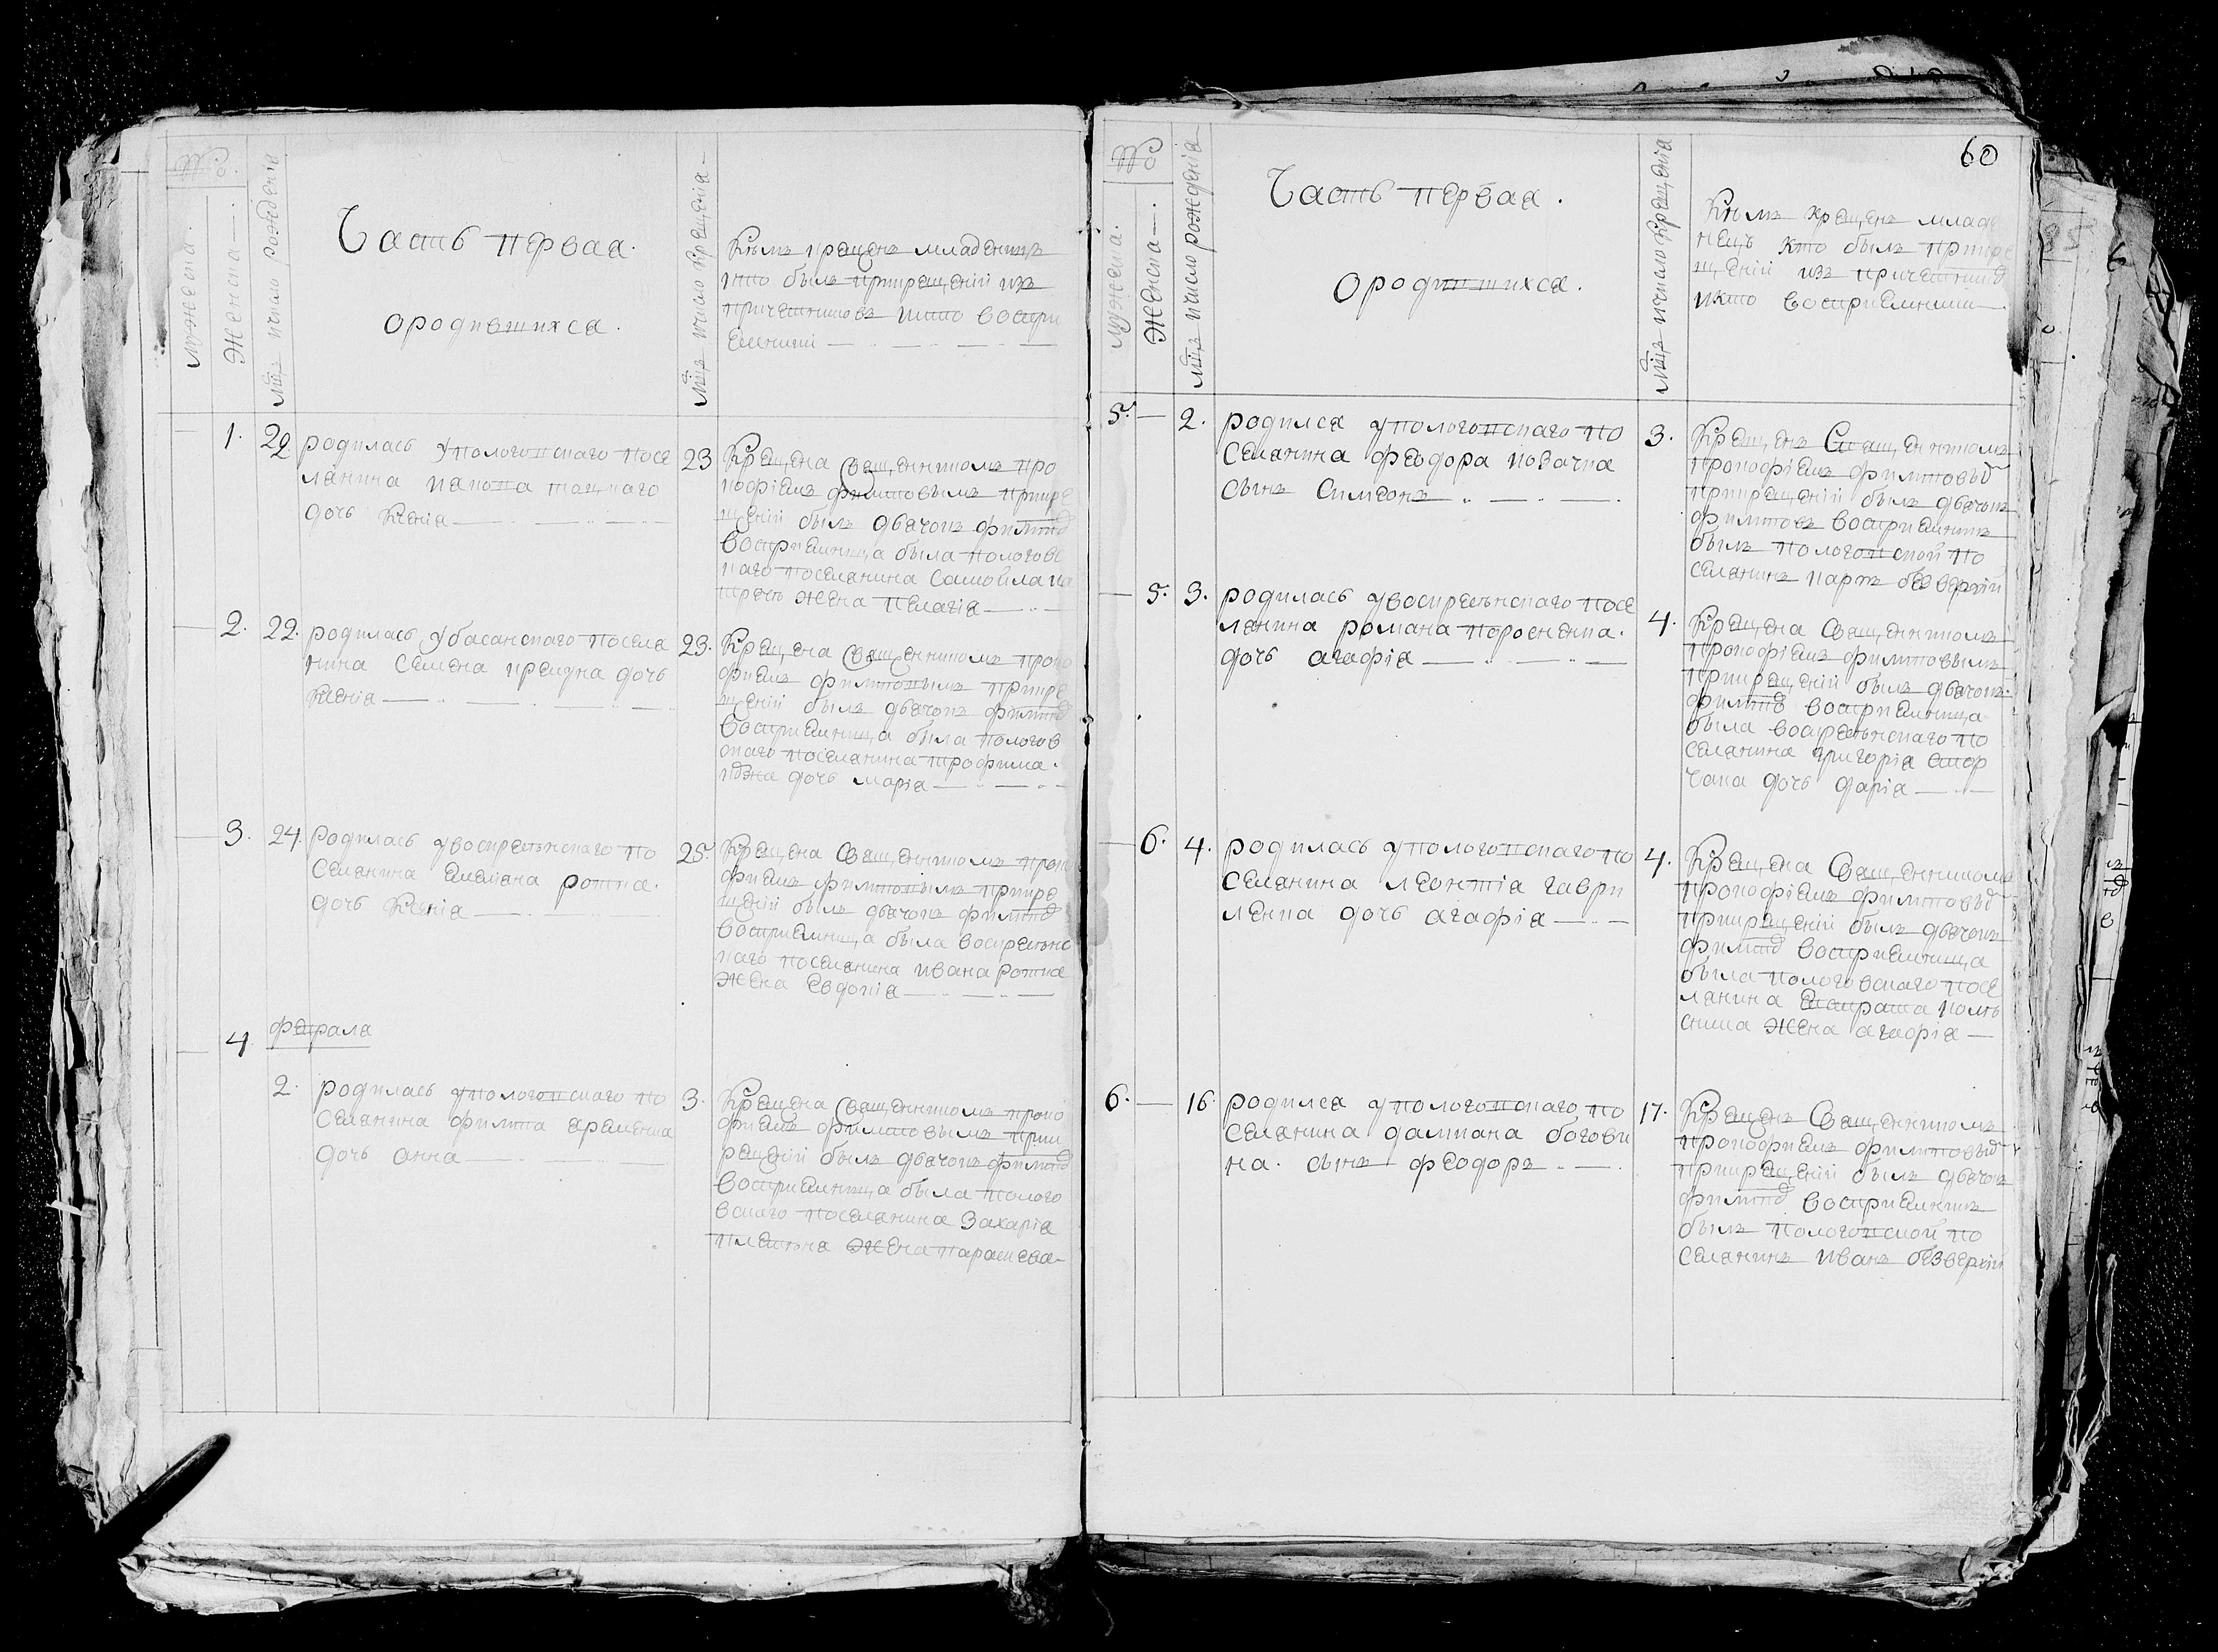 №
мужеска.
Женска
мц̃ъ и число рождения
Часть первая.
ородившихся.
мц̃ъ и число крещения
Кемъ крещенъ младенецъ
кто былъ прикрещении изъ
причетниковъ икто воспри
емники
1.
22
родилась Упологовскаго посе
лянина
дочь Ксения
23
Крещена Священникомъ про
кофиемъ филиповымъ прикре
щении былъ дьячокъ филипов
восприемница была пологовс
каго поселянина самойла
жена Пелагия
2.
22.
родилась Убасанскаго поселя
нина Семена дочь
Ксения
23.
Крещена Священникомъ проко
фиемъ филиповымъ прикре
щении былъ дьячокъ филипов
восприемница была пологов
скаго поселянина трофима
дочь мария
3.
24.
родилась увоскресенскаго по
селянина емельяна ротка.
дочь Ксения
25.
Крещена Священникомъ проко
фиемъ филиповымъ прикре
щении былъ дьячокъ филипов
восприемница была воскресенс
каго поселянина ивана ротка
жена Евдокия
4
февраля
2.
родилась упологовскаго по
селянина филипа яременка
дочь анна
3.
Крещена Священникомъ проко
фиемъ филиповымъ прик
рещении былъ дьячокъ филипов
восприемница была полого
вскаго поселянина Захария
жена параскева
60
№
мужеска.
Женска
мц̃ъ и число рождения
Часть первая.
ородившихся.
мц̃ъ и число крещения
Кемъ крещенъ младе
нецъ кто былъ прикре
щении изъ причетников
икто восприемники
5.
2.
родился упологовскаго по
селянина феодора новачка
сынъ Симеонъ
3.
Крещенъ Священникомъ
прокофиемъ филиповым
прикрещении былъ дьячокъ
филиповъ восприемникъ
былъ пологовской по
селянинъ карпъ безверхий
5.
3.
родилась увоскресенскаго посе
лянина романа поросенка.
дочь агафия
4.
Крещена Священникомъ
прокофиемъ филиповымъ
прикрещении былъ дьячокъ
филипов восприемница
была воскресенскаго по
селянина григория скор
чака дочь дария
6.
4.
родилась упологовскаго по
селянина леонтия гаври
ленка дочь агафия
4.
Крещена Священникомъ
прокофиемъ филиповым
прикрещении былъ дьячокъ
филипов восприемница
была пологовскаго посе
лянина
жена агафия
6.
16.
родился упологовскаго по
селянина дамиана богови
на. сынъ феодоръ
17.
Крещенъ Священникомъ
прокофиемъ филиповым
прикрещении былъ дьячокъ
филипов восприемникъ
былъ пологовской по
селянинъ иванъ безверхий